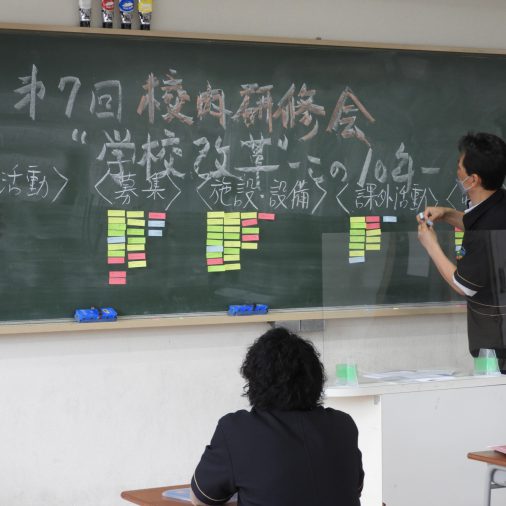 第7回 校内研修会
"学校改革"-この10年-
活動〉 〈募集〉 〈施設・設備〉 〈課外活動〉